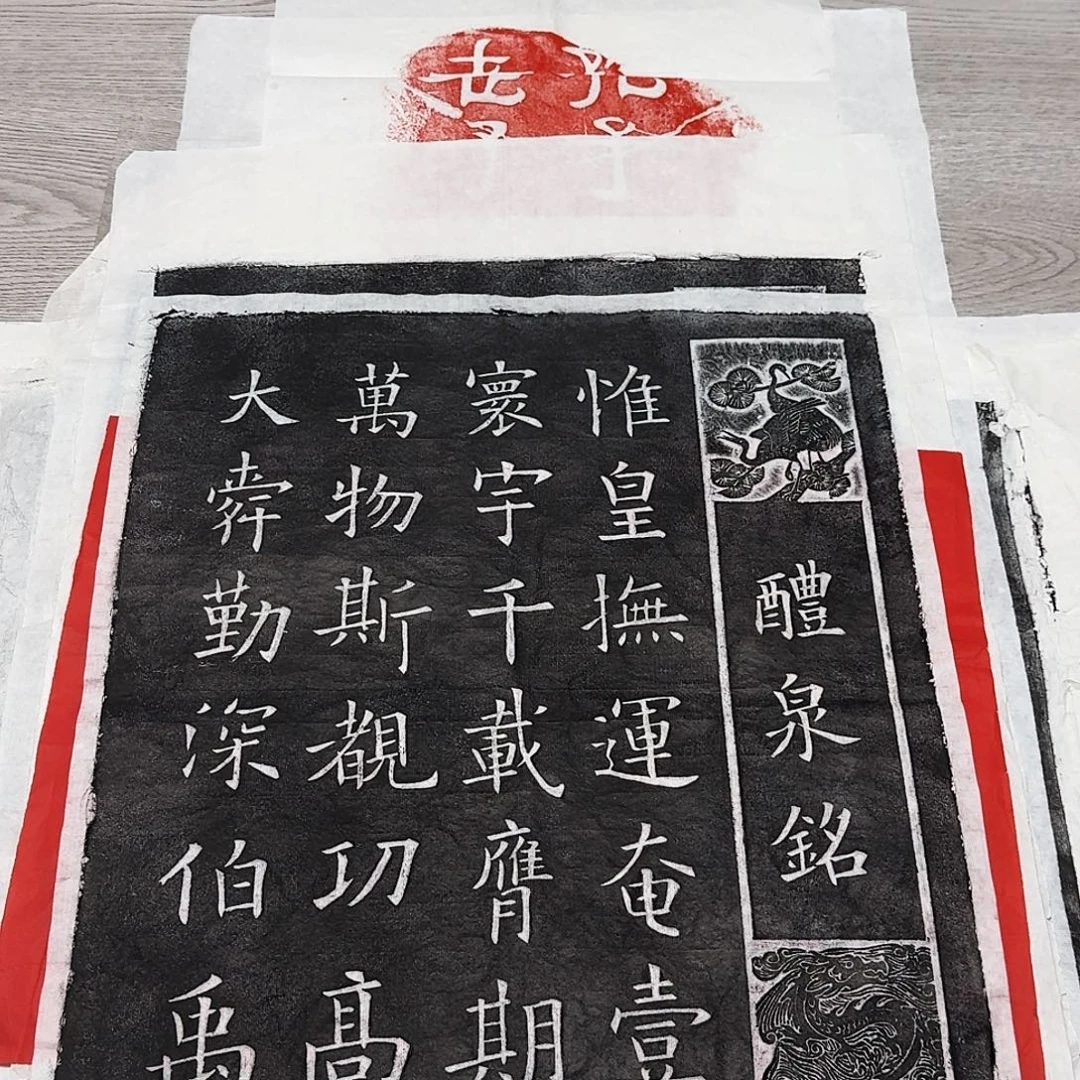 世
醴泉銘
惟皇撫運奄壹
寰宇千載膺期
萬物斯覩功高
大舜勤深伯禹